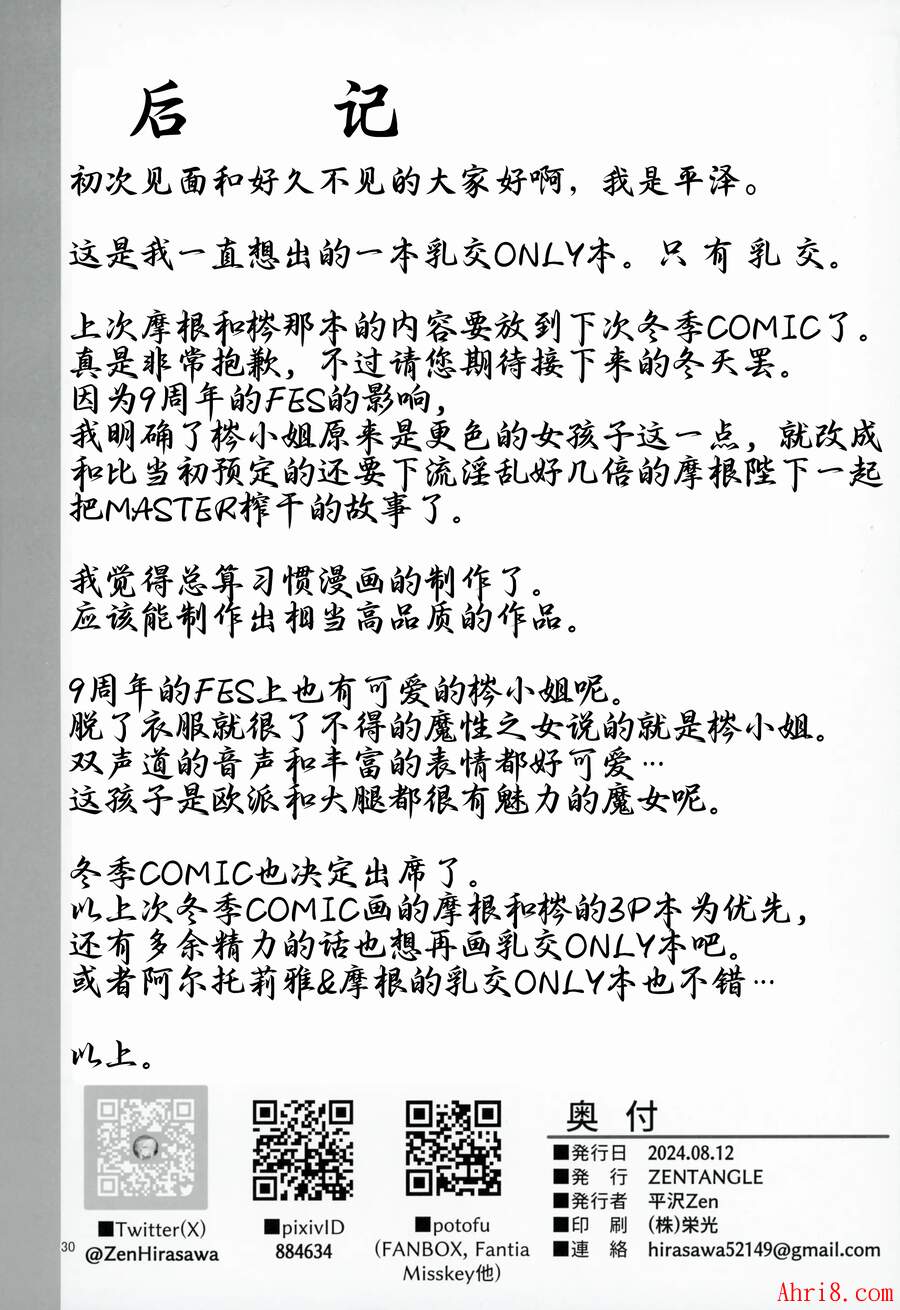 后 记
初次见面和好久不见的大家好啊，我是平泽。
这是我一直想出的一本乳交ONLY本。只 有 乳 交。
上次摩根和梣那本的内容要放到下次冬季COMIC了。
真是非常抱歉，不过请您期待接下来的冬天罢。
因为9周年的FES的影响，
我明确了梣小姐原来是更色的女孩子这一点，就改成
和比当初预定的还要下流淫乱好几倍的摩根陛下一起
把MASTER榨干的故事了。
我觉得总算习惯漫画的制作了。
应该能制作出相当高品质的作品。
9周年的FES上也有可爱的梣小姐呢。
脱了衣服就很了不得的魔性之女说的就是梣小姐。
双声道的音声和丰富的表情都好可爱…
这孩子是欧派和大腿都很有魅力的魔女呢。
冬季COMIC也决定出席了。
以上次冬季COMIC画的摩根和梣的3P本为优先，
还有多余精力的话也想再画乳交ONLY本吧。
或者阿尔托莉雅&摩根的乳交ONLY本也不错…
以上。
■Twitter(X)
@ZenHirasawa
■pixivID
884634
■potofu
(FANBOX, Fantia
Misskey他)
奥 付
■発行日 2024.08.12
■発 行 ZENTANGLE
■発行者 平沢Zen
■印 刷 (株)栄光
■連 絡 hirasawa52149@gmail.com
30
Ahri8.com